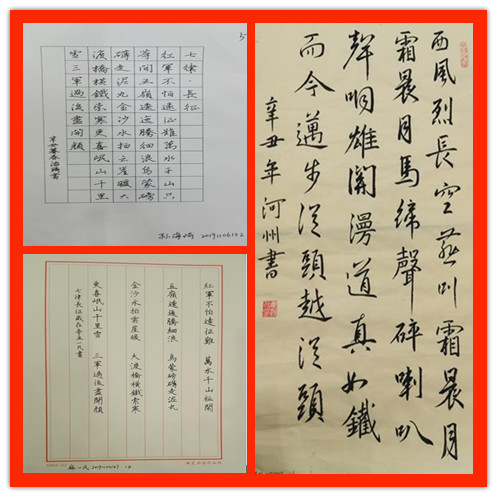 七律·長征
紅軍不怕遠征難萬水千山只
等閑五嶺逶迤騰細浪烏蒙磅
礴走泥丸金沙水拍雲崖暖大
渡橋橫鐵索寒更喜岷山千里
雪三軍過後盡開顏
紅軍不怕遠征難 萬水千山
五嶺逶迤騰細浪 烏蒙磅礴走泥丸
金沙水拍雲崖暖 大渡橋橫鐵索寒
更喜岷山千里雪 三軍過後盡開顏
七律長征歲在辛丑一凡書
西風烈長空雁叫霜晨月
霜晨月馬蹄聲碎喇叭
聲咽雄關漫道真如鐵
而今邁步從頭越從頭
辛丑年河州書